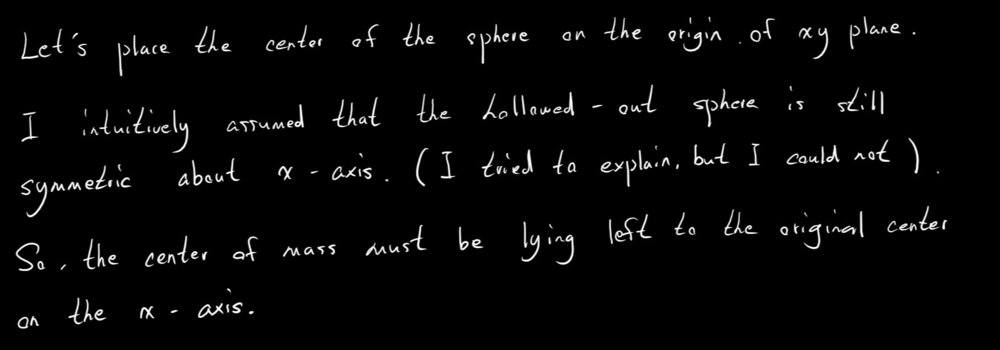 Let's place the center of the sphere on the origin of xy plane.
I intuitively assumed that the hollowed-out sphere is still
symmetric about x-axis. (I tried to explain, but I could not).
So, the center of mass must be lying left to the original center
on the x-axis.